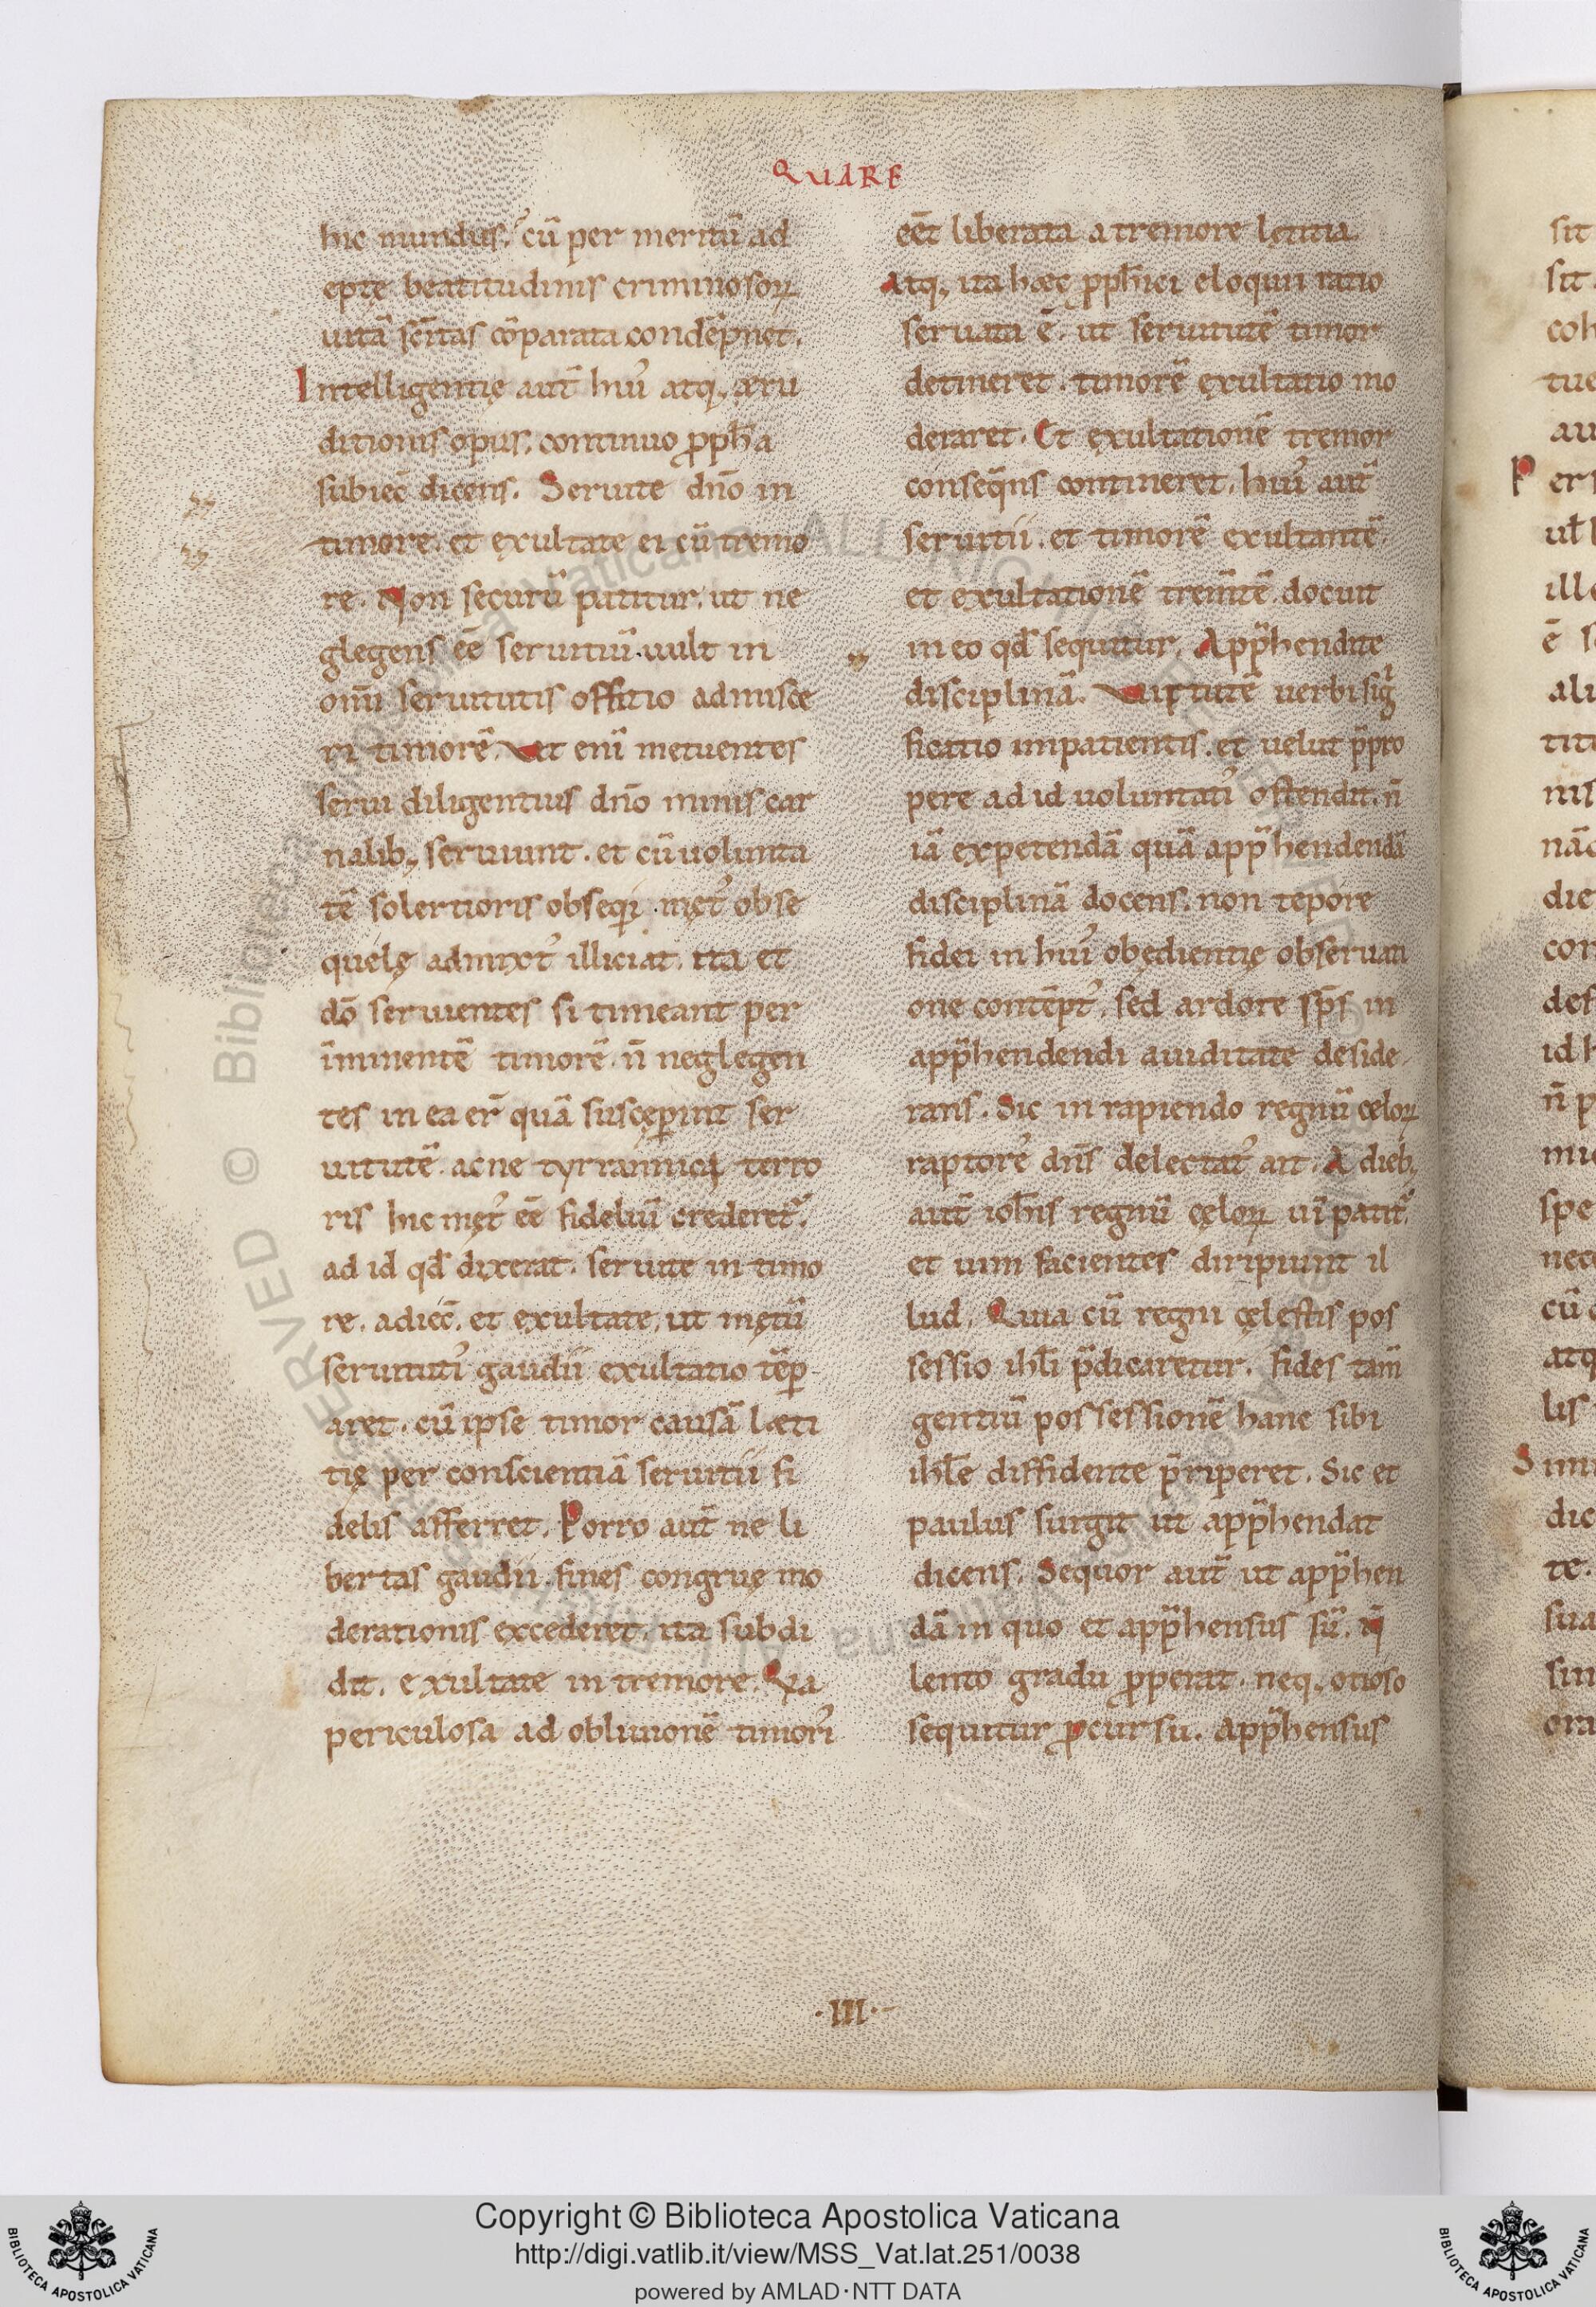 QUARE
hic mundus. cũ per meritũ ad
eptę beatitudinis criminosoꝝ
uitã sc̃itas cõparata condẽpnet.
Intelligentię aut̃ hui᾽ atq; æru
ditionis opus. continuo ꝓph̃a
subiec̃ dicens. Seruite dño in
timore. et exultate ei cũ tremo
re. Non securũ patitur. ut ne
glegens eẽ seruitiũ. uult in
om̃i seruitutis offitio admisce
ri timorẽ. Vt eni᷈ metuentes
serui diligentius dño minis car
nalib; seruiunt. et cũ uolunta
tẽ solertioris obseq̃i. męt᾽ obse
quelę admixt᾽ illiciat. ita et
dõ seruientes si timeant per
ĩminentẽ timorẽ. ñ neglegen
tes in ea er̃ quã suscęperint ser
uitutẽ. ac ne tyrannicꝰ terro
ris hic męt᾽ eẽ fideliũ crederet᷈.
ad id qđ dixerat. seruite in timo
re. adiec̃. et exultate. ut mętũ
seruituti᾽ gaudii exultatio tẽꝑ
aret. cũ ipse timor causã læti
tię per conscientiã seruitii fi
delis afferret. Porro aut̃ ne li
bertas gaudii. fines congruę mo
derationis excederet. ita subdi
dit. exultate in tremore. Qa
periculosa ad obliuionẽ timori᾽
eẽt liberata a tremore lętitia.
Atq; ita hæc ꝓph̃ici eloquii ratio
seruata ẽ. ut seruitutẽ timor
detineret. timorẽ exultatio mo
deraret. Et exultationẽ tremor
conseq̃ns contineret. hui᾽ aut̃
seruitii. et timorẽ exultantẽ.
et exultationẽ trem̃tẽ. docuit
in eo qđ sequitur. App̃hendite
disciplinã. Virtutẽ uerbi sig̃
ficatio impatientis. et uelut p̃pro
pere ad id uoluntati᾽ ostendit. ñ
iã expetendã quã app̃hendendã
disciplinã docens. non tepore
fidei in hui᾽ obędientię obseruati
one contẽpt᾽. sed ardore sp̃s in
app̃hendendi auiditate deside
rans. Sic in rapiendo regnũ cęloꝝ
raptore᾽ dñs delectat᾽ ait. A dieb;
aut̃ ioh̃is regnũ cęloꝝ ui᷈ patit᷈.
et uim facientes diripiunt il
lud. Quia cũ regni cęlestis pos
sessio ihl̃i p̃dicaretur. fides tam̃
gentiũ possessionẽ hanc sibi
ihl̃e diffidente p̃riperet. Sic et
paulus surgit ut app̃hendat
dicens. Sequor aut̃ ut app̃hen
dã in quo et app̃hensus sũ. ñ
lento gradu ꝓperat. neq; otioso
sequitur ꝓcursu. App̃hensus
·III·
sit
sit
coh
tue
au
ill
ẽ s
ali
titi
nis
nãc
die
con
des
id h
ñ p
mic
spe
nec
cũ
atq
lis
dic
te.
sua
sin
ora
Copyright © Biblioteca Apostolica Vaticana
http://digi.vatlib.it/view/MSS_Vat.lat.251/0038
powered by AMLAD·NTT DATA
BIBLIOTECA APOSTOLICA VATICANA
BIBLIOTECA APOSTOLICA VATICANA